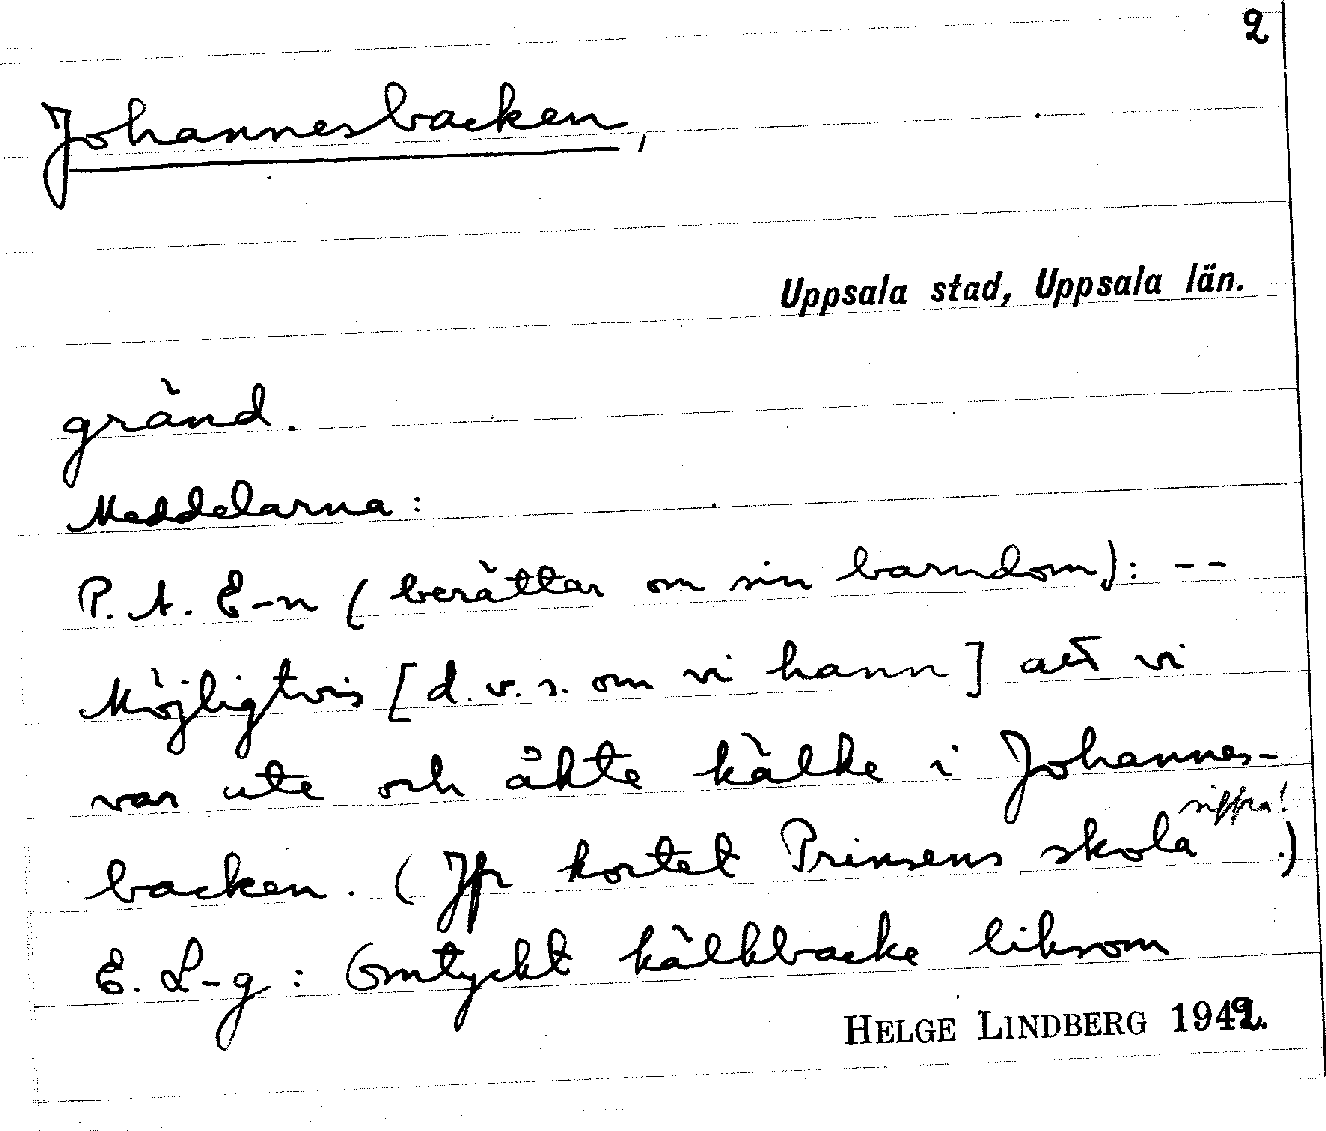 2
Johannesbacken,
Uppsala stad, Uppsala län.
gränd.
Meddelarna:
P. A. E-n (berättar om sin barndom): --
Möjligtvis [d.v.s. om vi hann] att vi
var ute och åkte kälke i Johannes-
siffra!
backen. (Jfr kortet Prinsens skola .)
E. L-g: Omtyckt kälkbacke liksom
HELGE LINDBERG 1942.